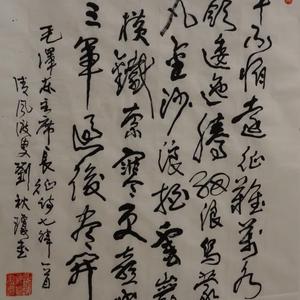 軍不怕遠征難萬水
嶺逶迤騰細浪烏蒙
丸金沙浪拍雲崖
橫鐵索寒更喜岷
三軍過後盡開
毛澤東主席長征詩七律一首
清風波叟劉秋